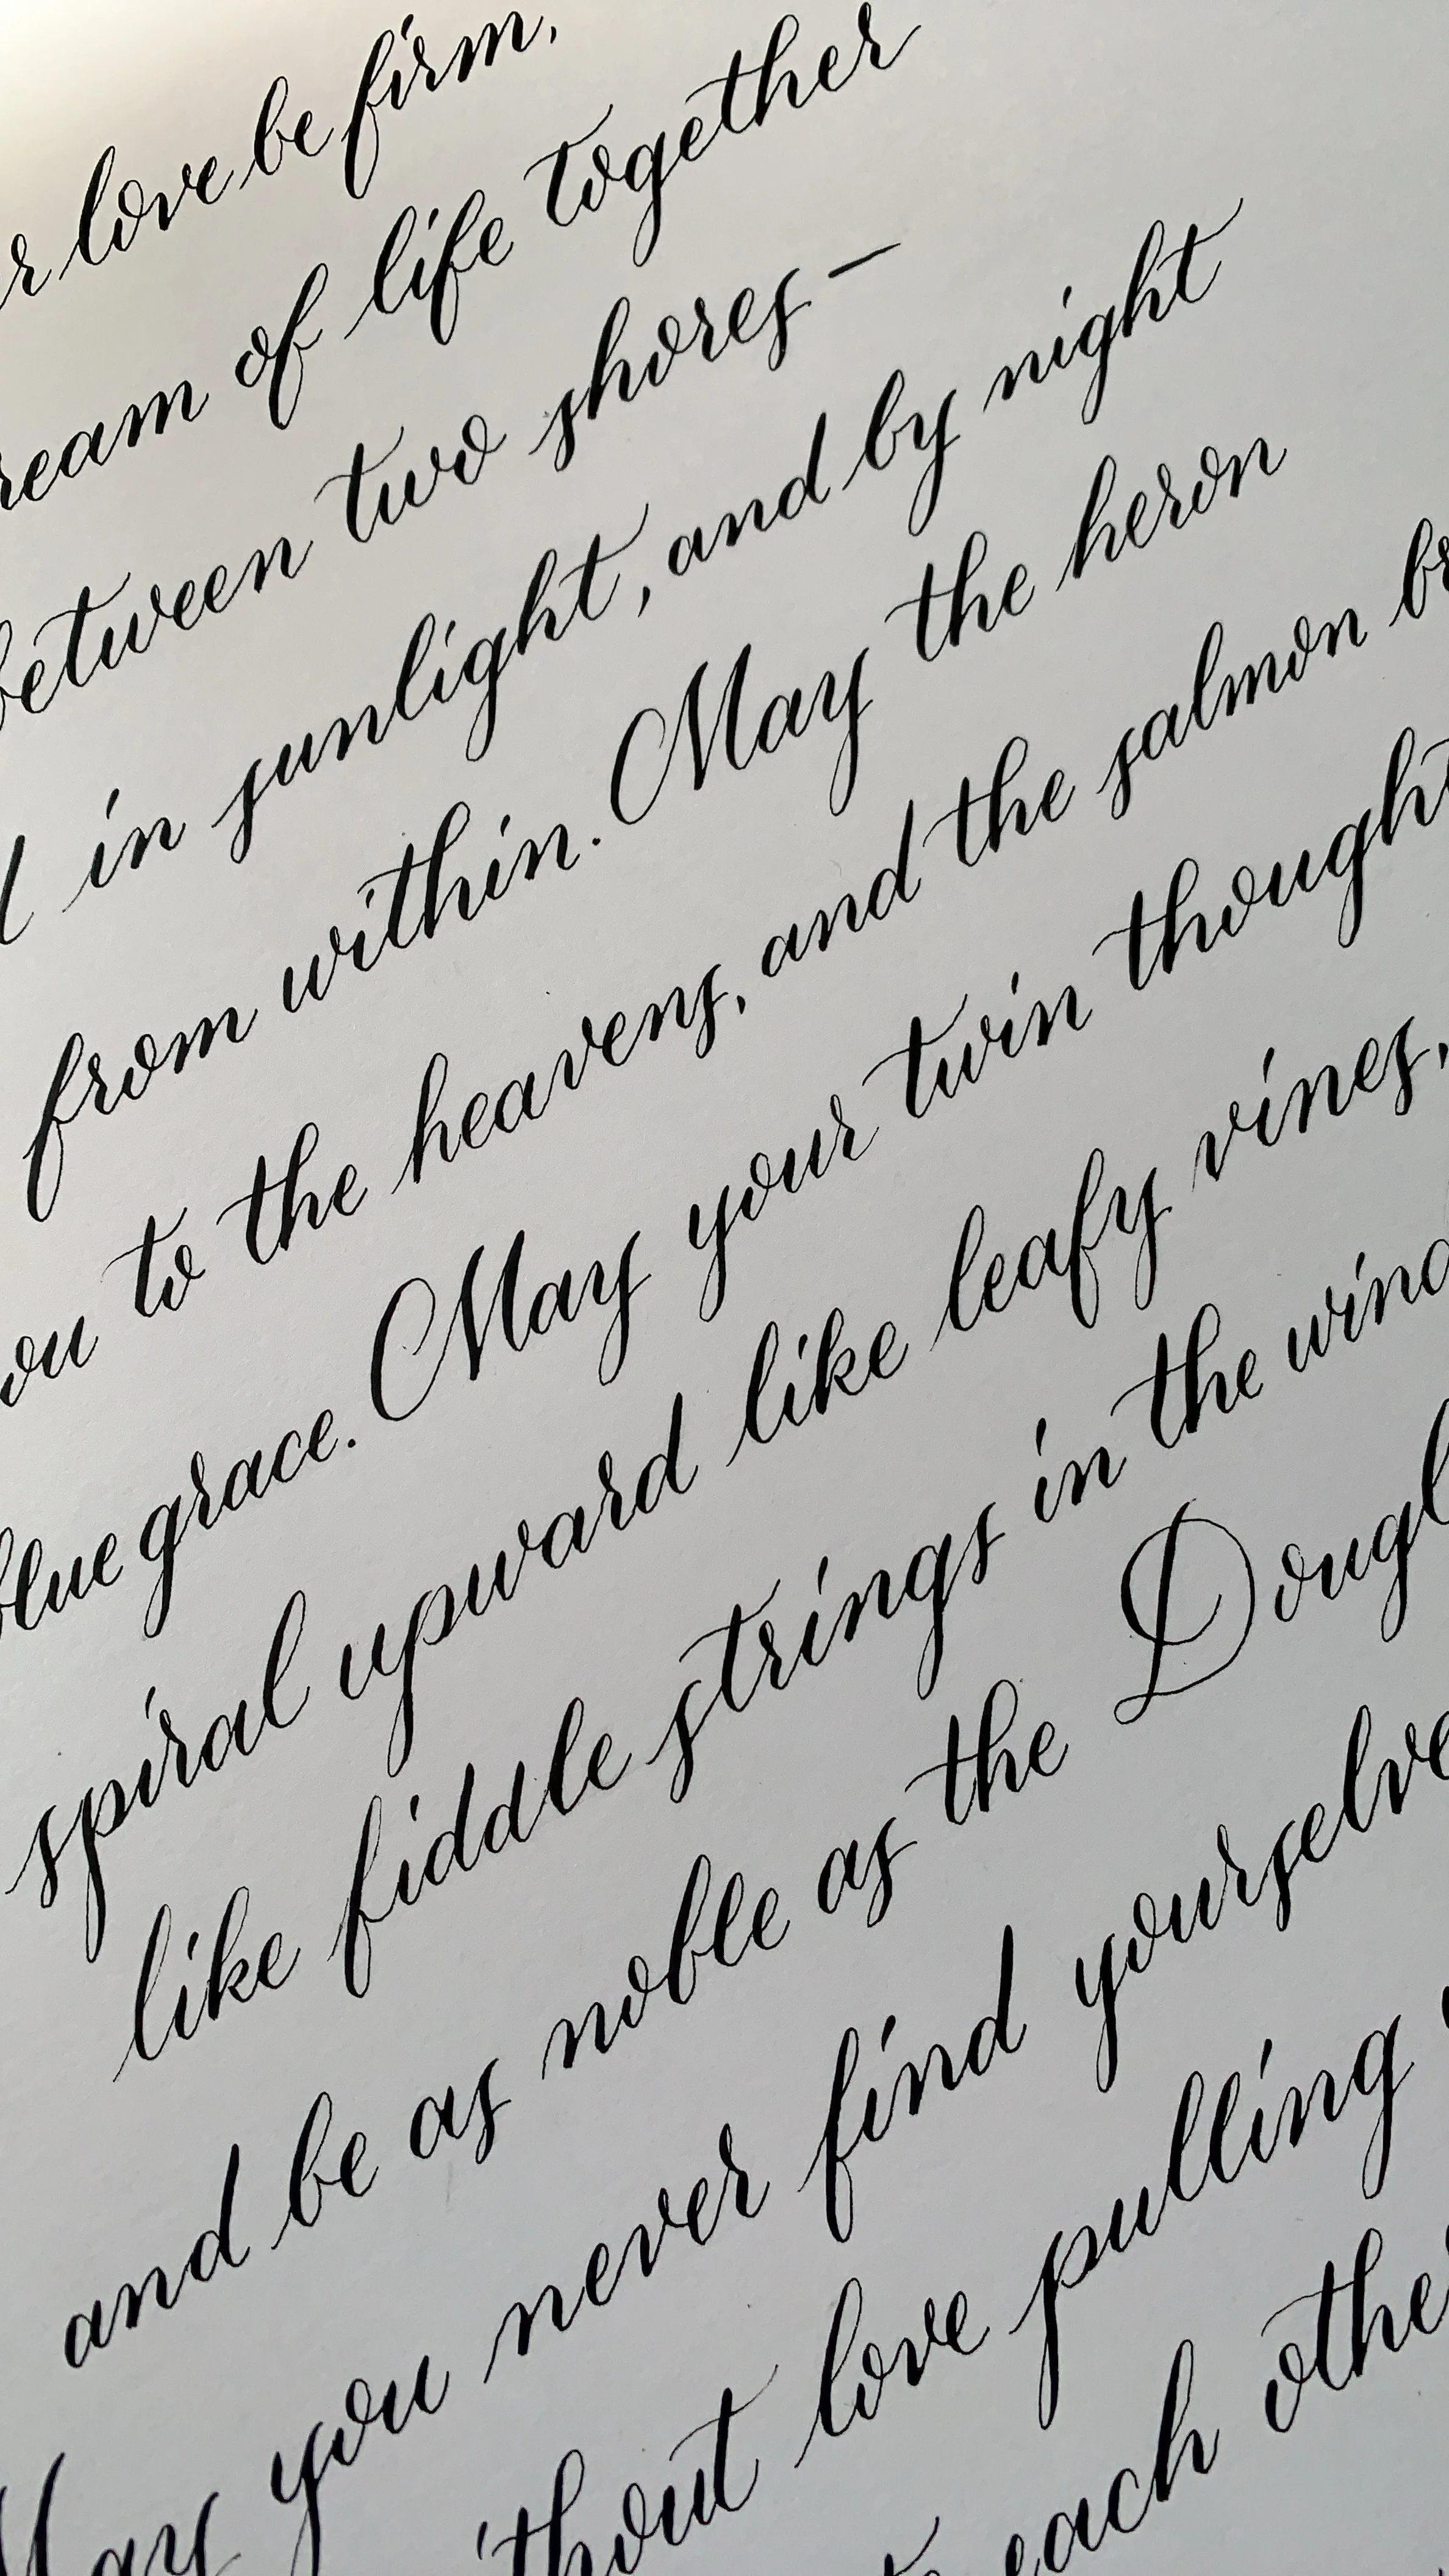 r love be firm,
ream of life together
between two shores –
d in sunlight, and by night
from within. May the heron
ou to the heavens, and the salmon br
blue grace. May your twin thought
spiral upward like leafy vines,
like fiddle strings in the wind
and be as noble as the Dougl
May you never find yourselve
ithout love pulling
each othe